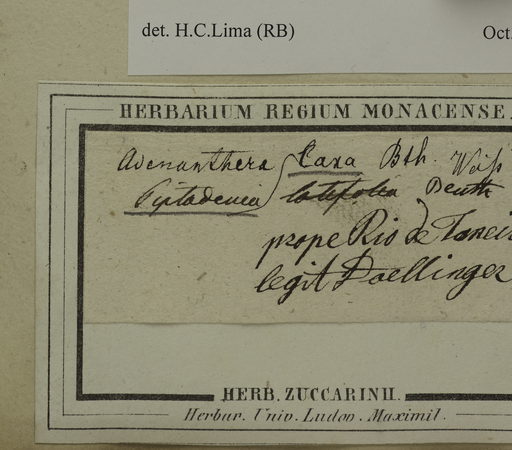 det. H.C.Lima (RB) Oct.
HERBARIUM REGIUM MONACENSE.
Adenanthera laxa Bth.
Piptadenia latifolia Benth
prope Rio de Janei
legit Doellinger
HERB. ZUCCARINII.
Herbar. Univ. Ludov. Maximil.